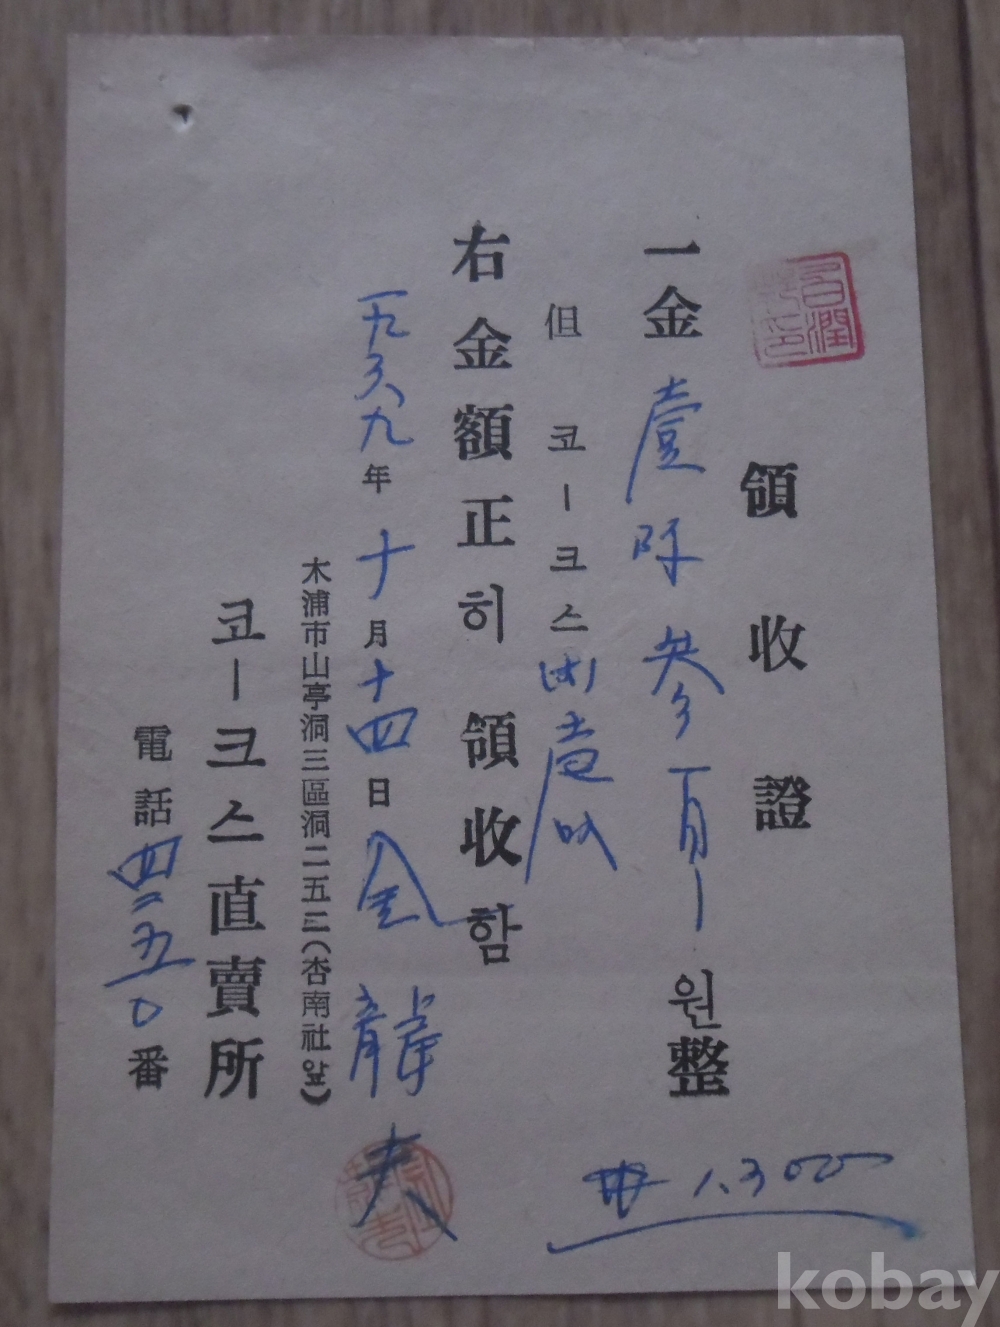 領收證
一金 壹阡參百 원整
但 코ー크스 壹叺
右金額正히領收함
一九六九年 十月 十四日 金
木浦市山亭洞三區洞二五三(杏南社앞)
코ー크스直賣所
電話 四二五〇番
1.300
kobay